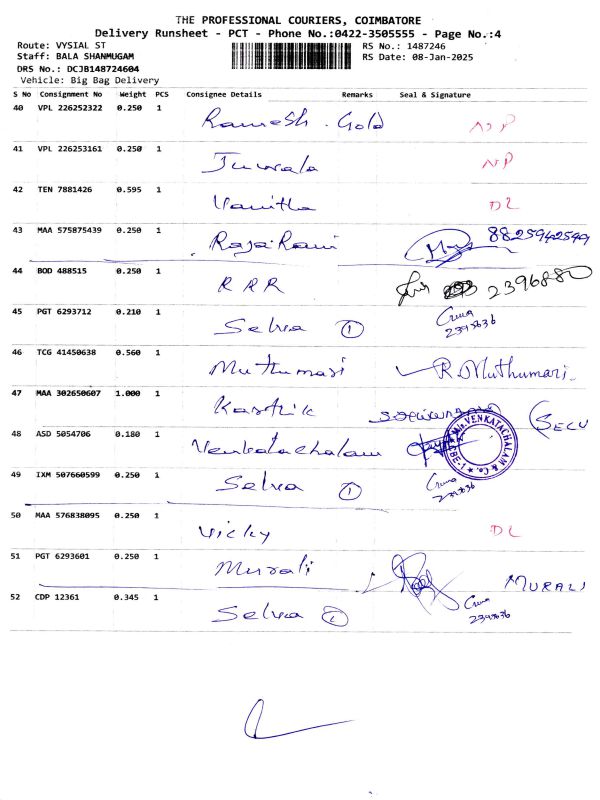 THE PROFESSIONAL COURIERS, COIMBATORE
Delivery Runsheet - PCT - Phone No.:0422-3505555 - Page No.:4
Route: VYSIAL ST RS No.: 1487246
Staff: BALA SHANMUGAM RS Date: 08-Jan-2025
DRS No.: DCJB148724604
Vehicle: Big Bag Delivery
S No Consignment No Weight PCS Consignee Details Remarks Seal & Signature
40 VPL 226252322 0.250 1 Ramesh. Gold
41 VPL 226253161 0.250 1 Juwala NP
42 TEN 7881426 0.595 1 Vanitha DL
43 MAA 575875439 0.250 1 Raja Rani 8825942599
44 BOD 488515 0.250 1 R R R 2396880
45 PGT 6293712 0.210 1 Selva 1 2393636
46 TCG 41450638 0.560 1 Muthumari R. Muthumari
47 MAA 302650607 1.000 1 Karthik (SECU
48 ASD 5054706 0.180 1 Venkatachalam VENKATACHALAM & Co. CBE-1
49 IXM 507660599 0.250 1 Selva 1
50 MAA 576838095 0.250 1 Vicky DL
51 PGT 6293601 0.250 1 Murali MURALI
52 CDP 12361 0.345 1 Selva 2393636